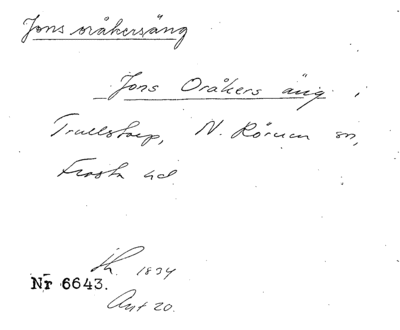 Jons oråkersäng
Jons Oråkers äng i
Trullstorp, N. Rörum sn,
Frosta hd
1834
Nr 6643.
Ant 20.